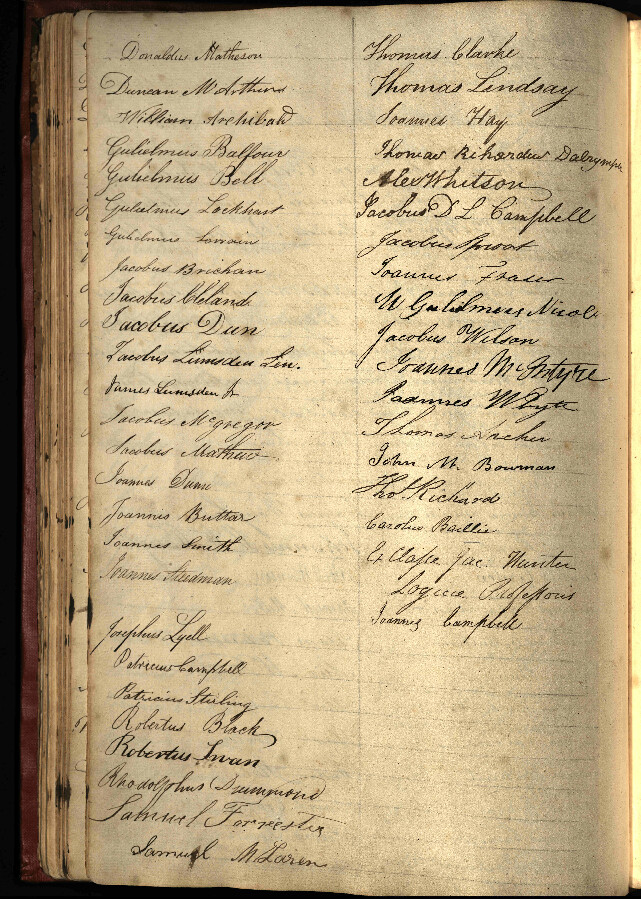 Donaldus Matheson
Duncan McArthur
William Archibald
Gulielmus Balfour
Gulielmus Bell
Gulielmus Lockhart
Gulielmus Lorrain
Jacobus Brichan
Jacobus Cleland
Jacobus Dun
Jacobus Lumsden Sen.
James Lumsden Jr
Jacobus McGregor
Jacobus Mathew
Joannes Dunn
Joannes Buttar
Joannes Smith
Joannes Steedman
Josephus Lyell
Patricius Campbell
Patricius Stirling
Robertus Black
Robertus Swan
Rhodolphus Drummond
Samuel Forrester
Samuel McLaren
Thomas Clarke
Thomas Lindsay
Joannes Hay
Thomas Richardus Dalrymple
Alex Whitson
Jacobus D L Campbell
Jacobus Sproat
Joannes Fraser
W Gulielmus Nicol
Jacobus Wilson
Joannes McIntyre
Joannes
Thomas Archer
John M. Bowman
Thos Richard
Carolus Baillie
Ex Classe Jac. Hunter
Logicae Professoris
Joannes Campbell